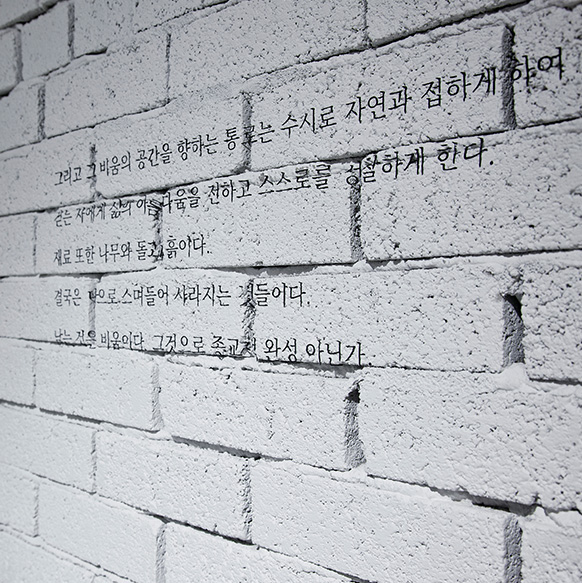 그리고 그 비움의 공간을 향하는 통로는 수시로 자연과 접하게 하여
걷는 자에게 삶의 아름다움을 전하고 스스로를 성찰하게 한다.
재료 또한 나무와 돌과 흙이다.
결국은 땅으로 스며들어 사라지는 것들이다.
남는 것은 비움이다. 그것으로 종교적 완성 아닌가